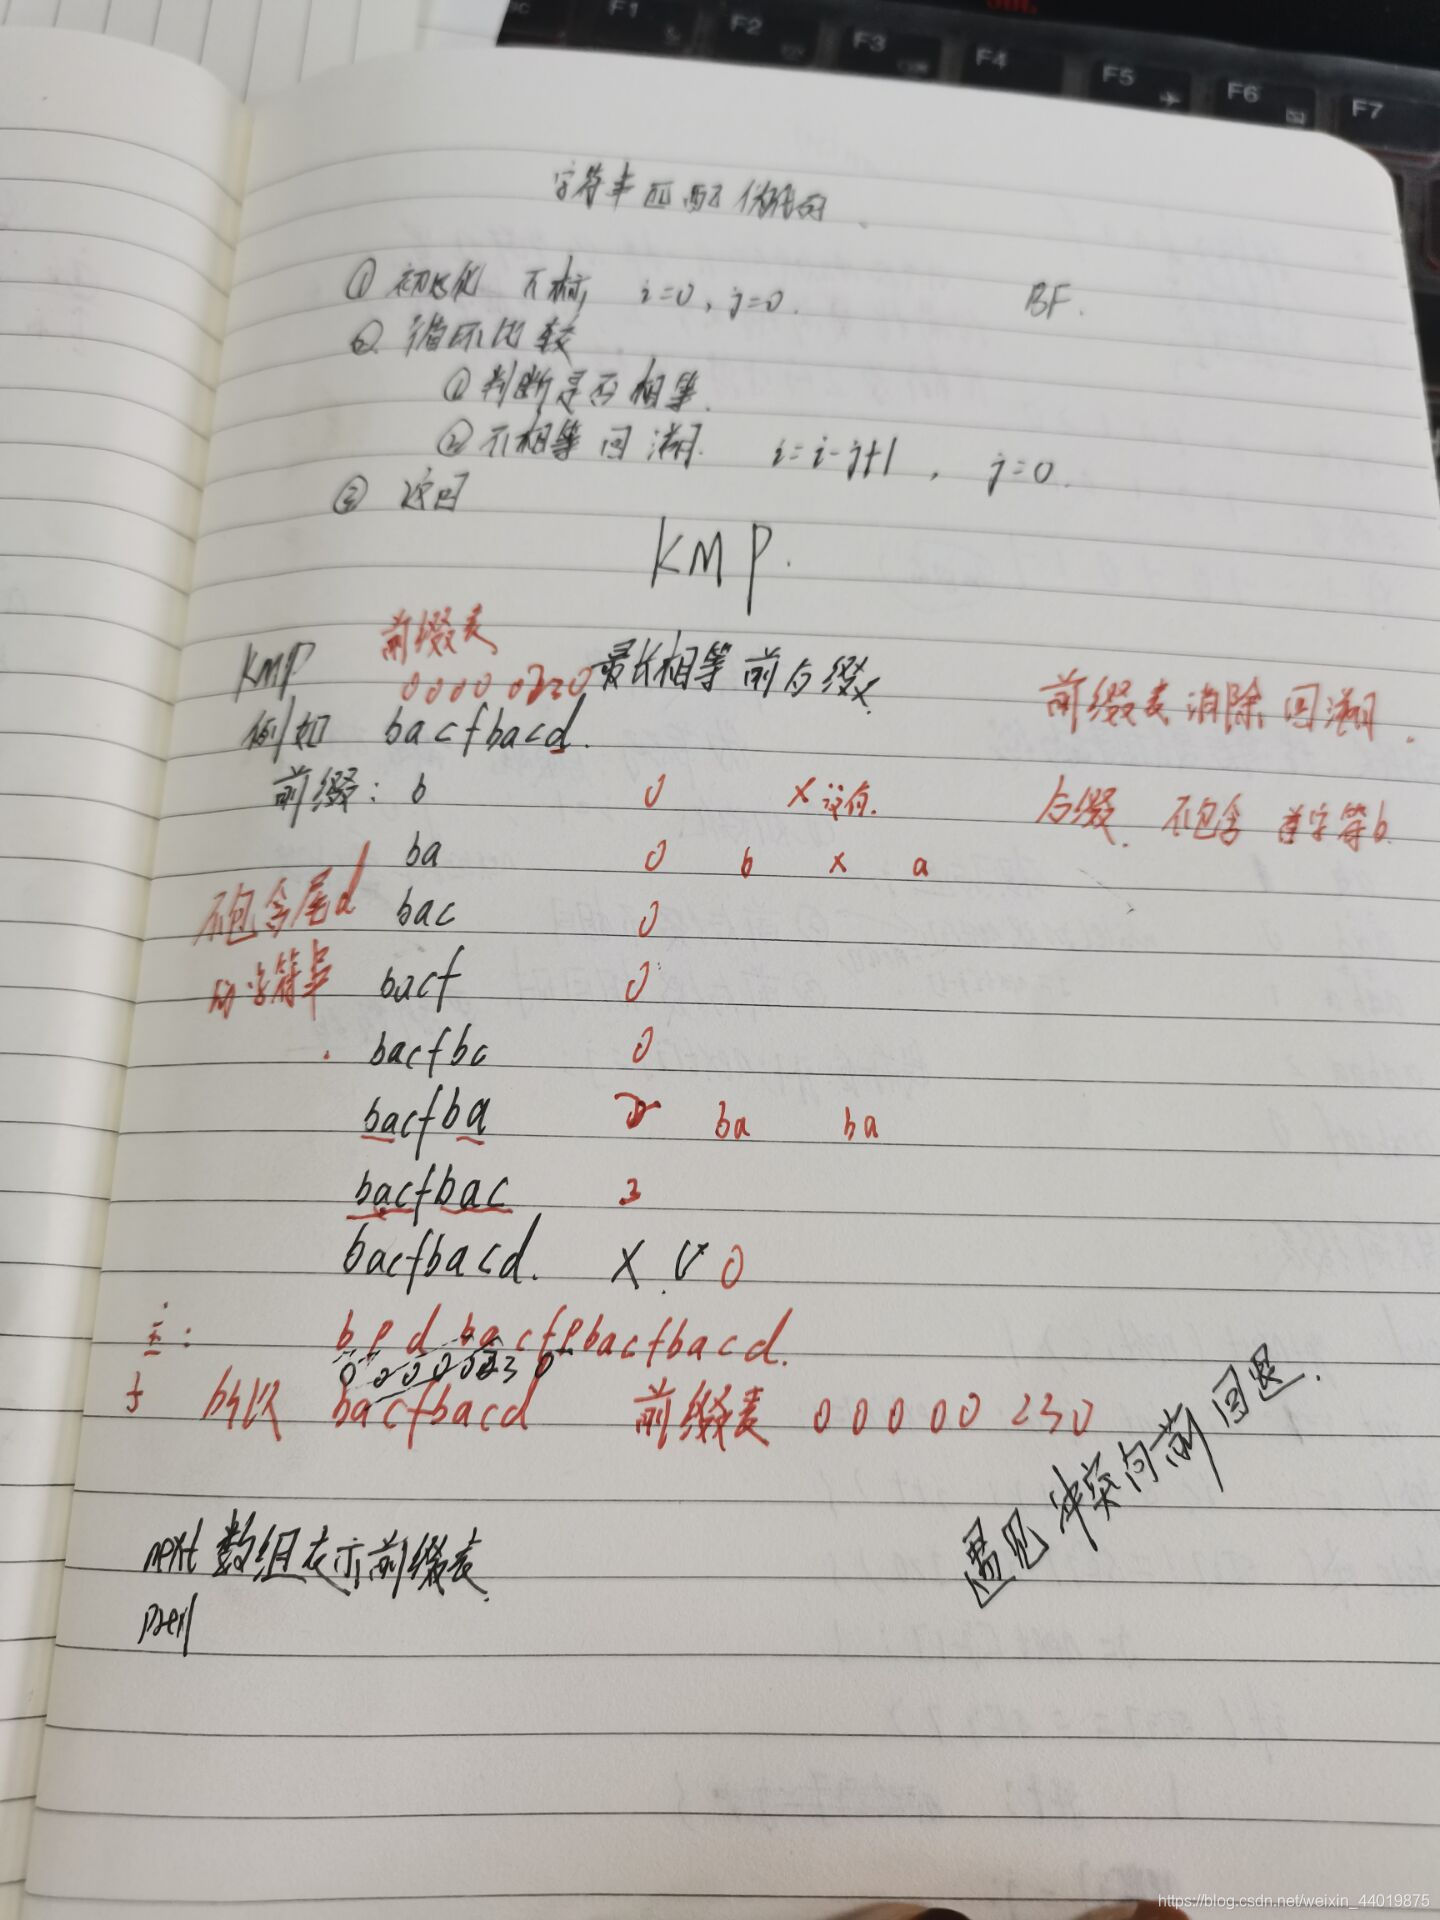 F1 F2 F3 F4 F5 F6 F7
字符串匹配伪代码
① 初始化 下标 i=0, j=0. BF.
② 循环比较
① 判断是否相等.
② 不相等回溯. i=i-j+1, j=0.
③ 返回
KMP.
前缀表
KMP 0000 0 0 最长相等前后缀.
前缀表消除回溯.
例如 bacfbacd.
前缀: b 0 X 没有. 后缀. 不包含首字符b
ba 0 b x a
不包含尾d bac 0
的字符串 bacf 0
bacfb 0
bacfba 2 ba ba
bacfbac 3
bacfbacd. X √ 0
主: b p d ba cfpbacfbacd.
0 0 0 0 0 2 3 0
子 bacfbacd 前缀表 00000 230
遇见冲突向前回退.
next数组表示前缀表.
https://blog.csdn.net/weixin_44019875